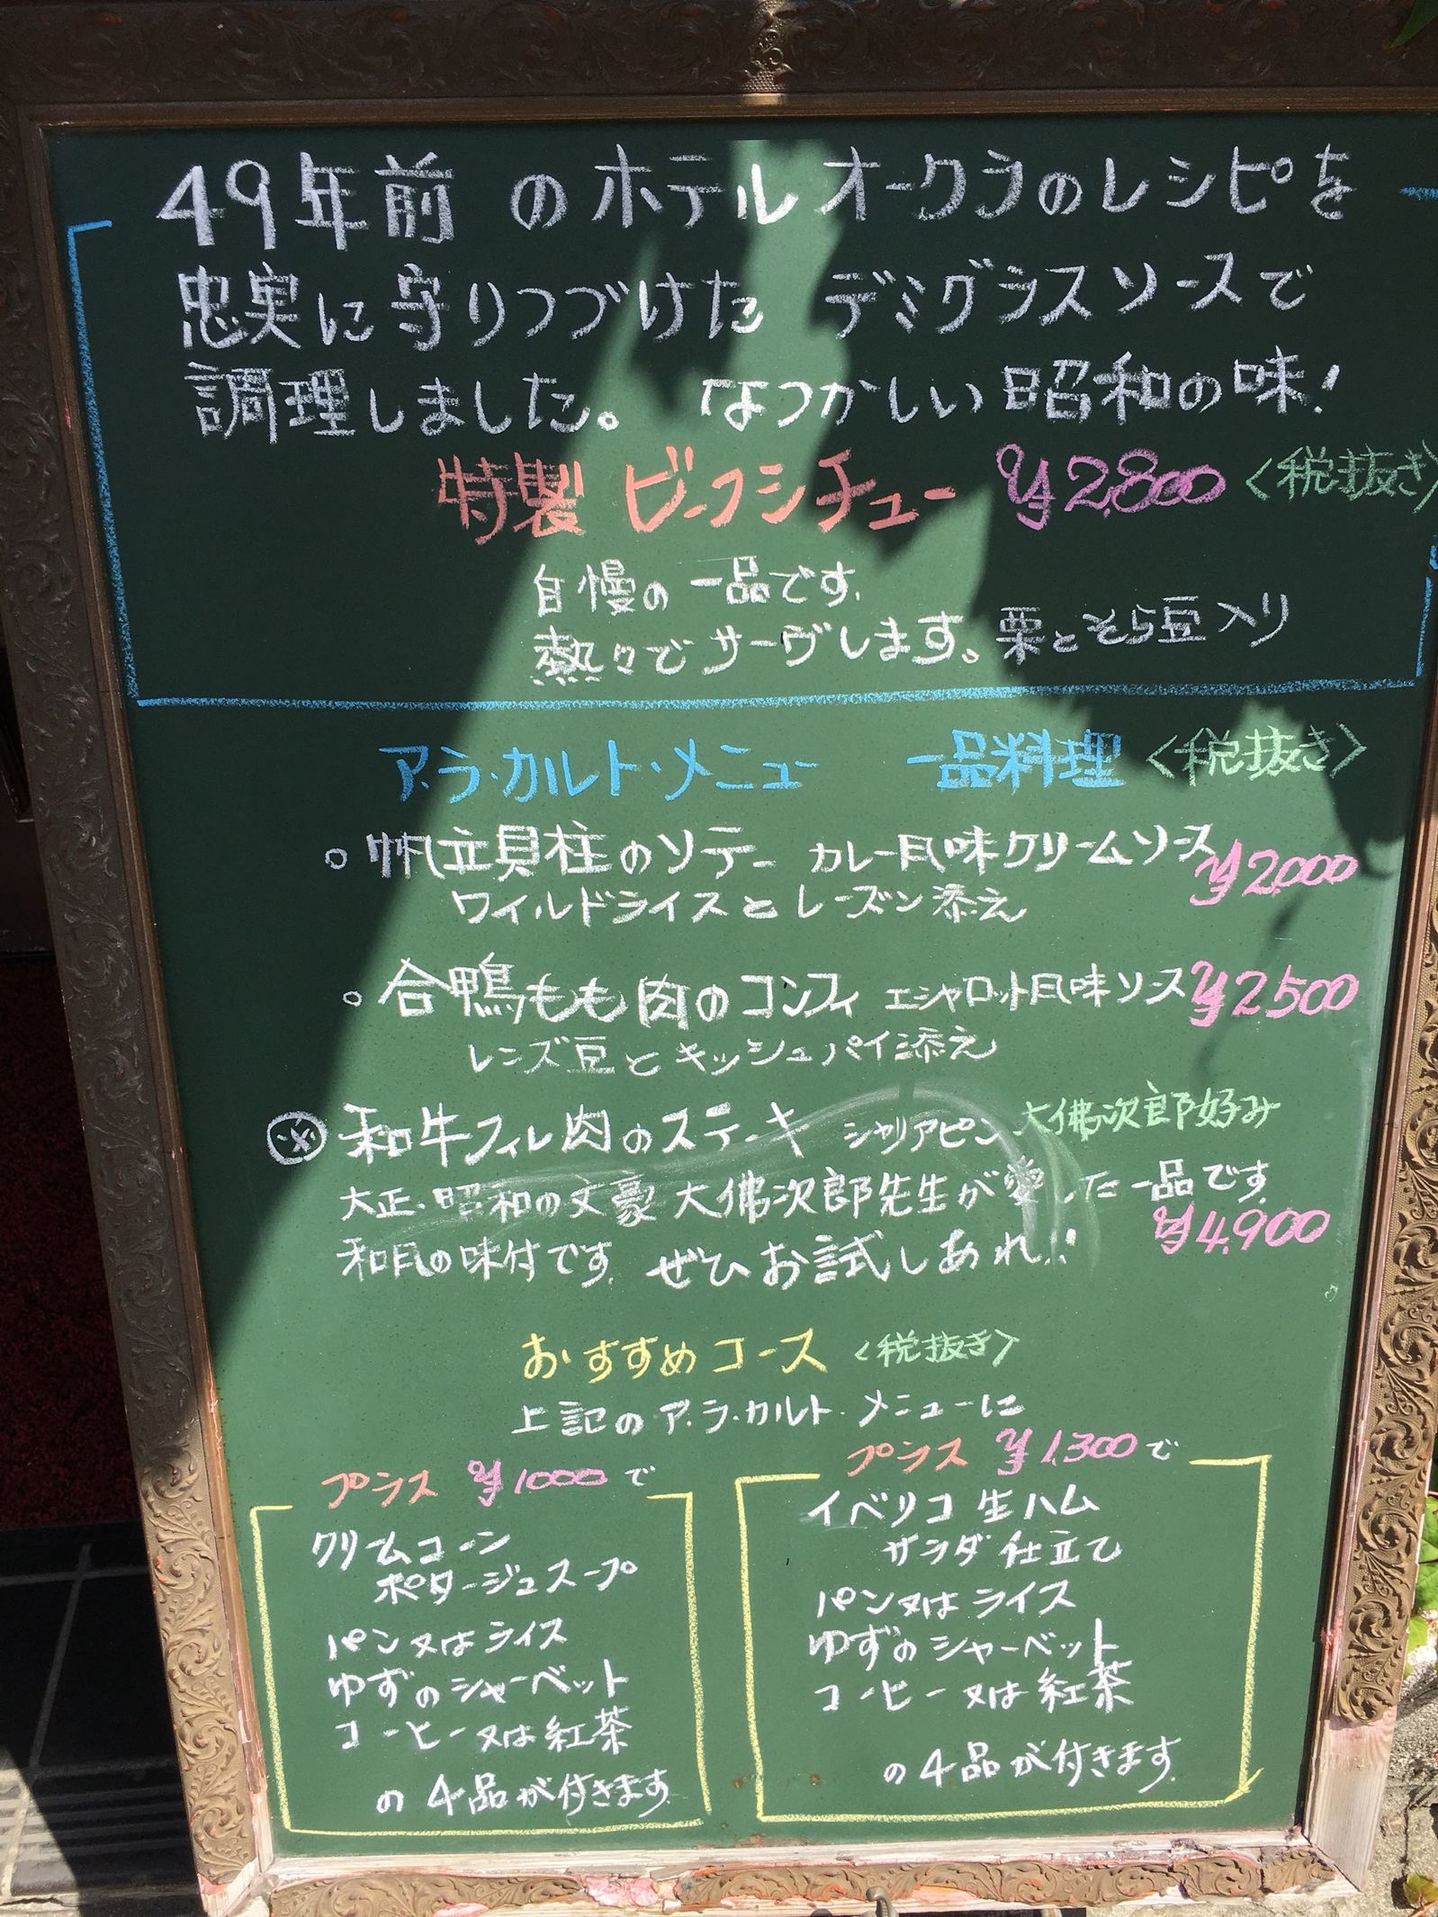 49年前のホテルオークラのレシピを
忠実に守りつづけた デミグラスソースで
調理しました。 なつかしい昭和の味!
特製 ビーフシチュー ¥2,800 <税抜き>
自慢の一品です。
熱々でサーヴします。栗とそら豆入り
ア・ラ・カルト・メニュー 一品料理 <税抜き>
○ 帆立貝柱のソテー カレー風味クリームソース ¥2,000
ワイルドライスとレーズン添え
○ 合鴨もも肉のコンフィ エシャロット風味ソース ¥2,500
レンズ豆とキッシュパイ添え
和牛フィレ肉のステーキ シャリアピン 大佛次郎好み
大正・昭和の文豪 大佛次郎先生が愛した一品です。
¥4,900
和風の味付です。ぜひお試しあれ!
おすすめコース <税抜き>
上記のア・ラ・カルト・メニューに
プラス ¥1000で
クリームコーン
ポタージュスープ
パン又はライス
ゆずのシャーベット
コーヒー又は紅茶
の4品が付きます。
プラス ¥1,300で
イベリコ生ハム
サラダ仕立て
パン又はライス
ゆずのシャーベット
コーヒー又は紅茶
の4品が付きます。